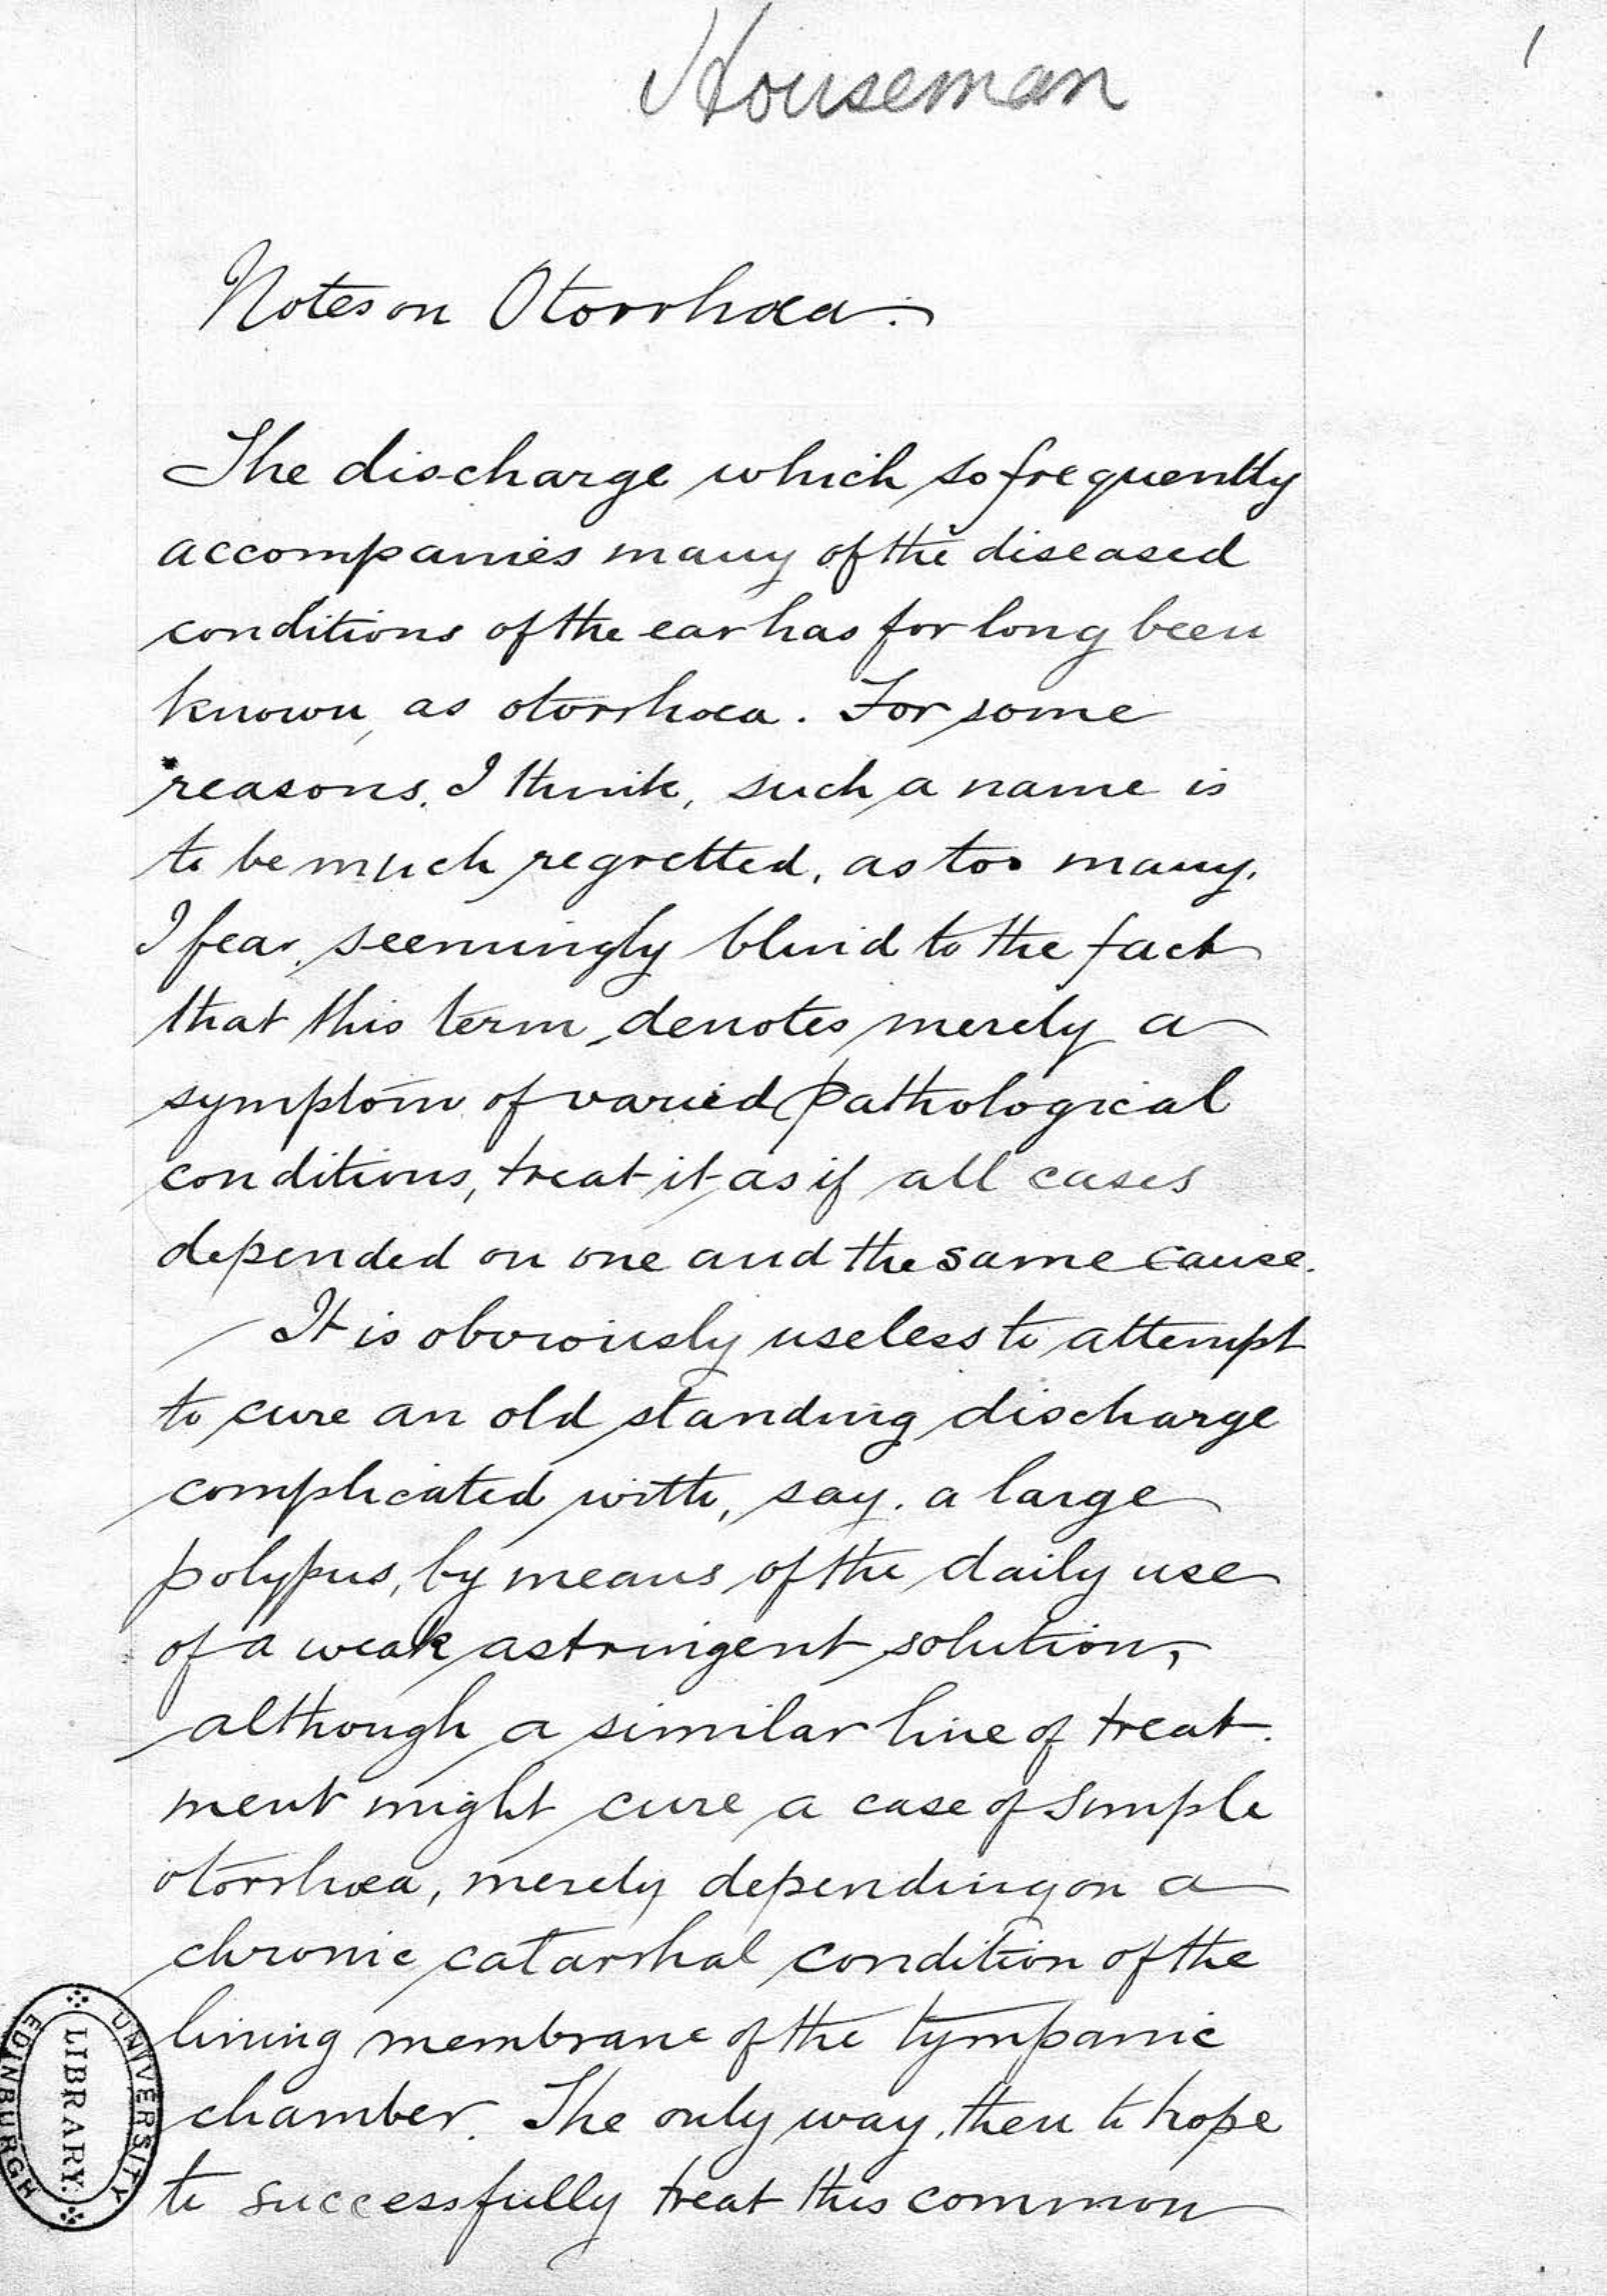 Houseman
1
Notes on Otorrhœa.
The discharge which so frequently
accompanies many of the diseased
conditions of the ear has for long been
known, as otorrhœa. For some
reasons, I think, such a name is
to be much regretted, as too many,
I fear, seemingly blind to the fact
that this term, denotes merely a
symptom of varied pathological
conditions, treat it as if all cases
depended on one and the same cause.
It is obviously useless to attempt
to cure an old standing discharge
complicated with, say, a large
polypus, by means of the daily use
of a weak astringent solution,
although a similar line of treat-
ment might cure a case of simple
otorrhœa, merely depending on a
chronic catarrhal condition of the
lining membrane of the tympanic
chamber. The only way, then to hope
to successfully treat this common
UNIVERSITY
LIBRARY
EDINBURGH